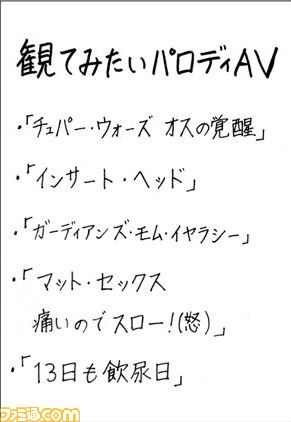 観てみたいパロディAV
・「チュパー・ウォーズ オスの覚醒」
・「インサート・ヘッド」
・「ガーディアンズ・モム・イヤラシー」
・「マット・セックス
痛いのでスロー!(怒)」
・「13日も飲尿日」
ファミ通.com